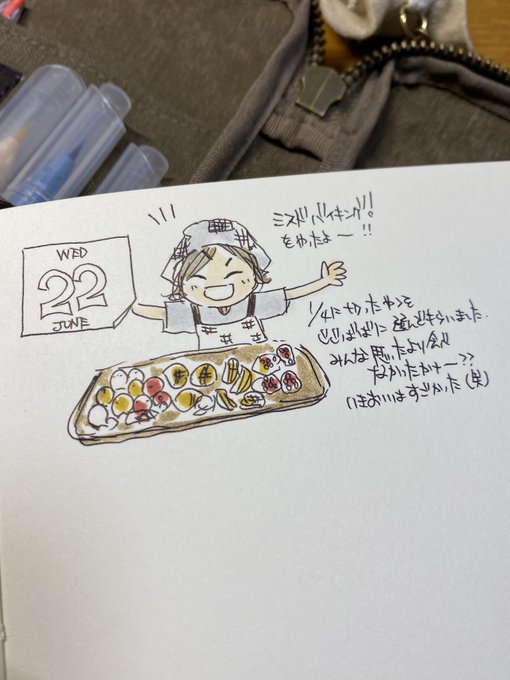 WED
22
JUNE
ミスドバイキング!
をやったよー!!
1/4に切ったやつを
じじばばに選んでもらいました。
みんな思ったより食べ
なかったかナー??
いきおいはすごかった(笑)